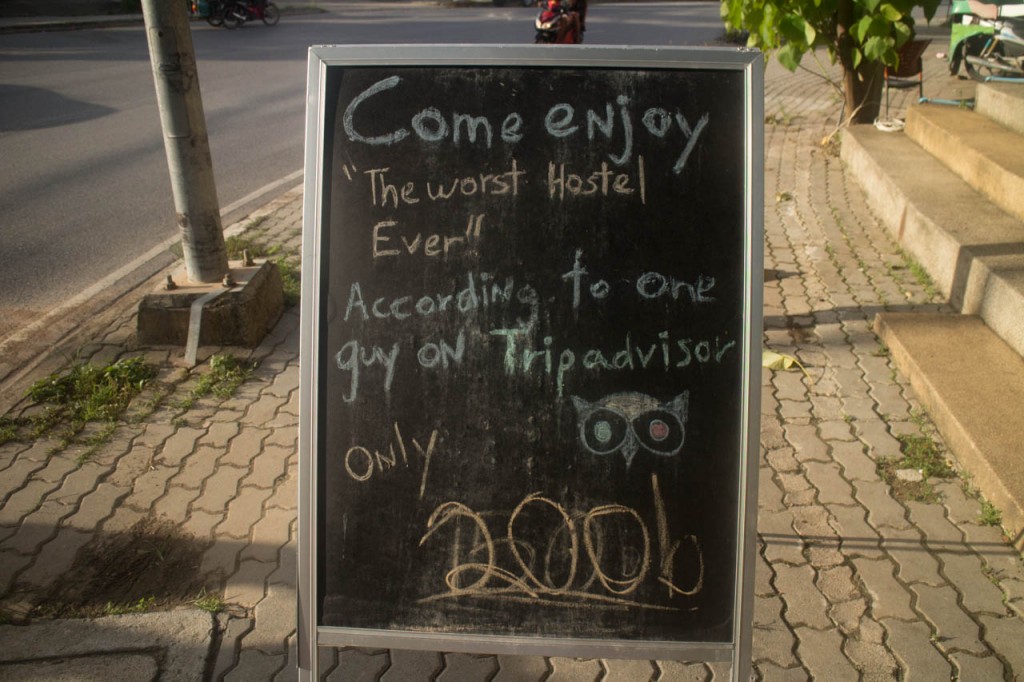 Come enjoy
"The worst Hostel
Ever"
According to one
guy on Tripadvisor
only
200b